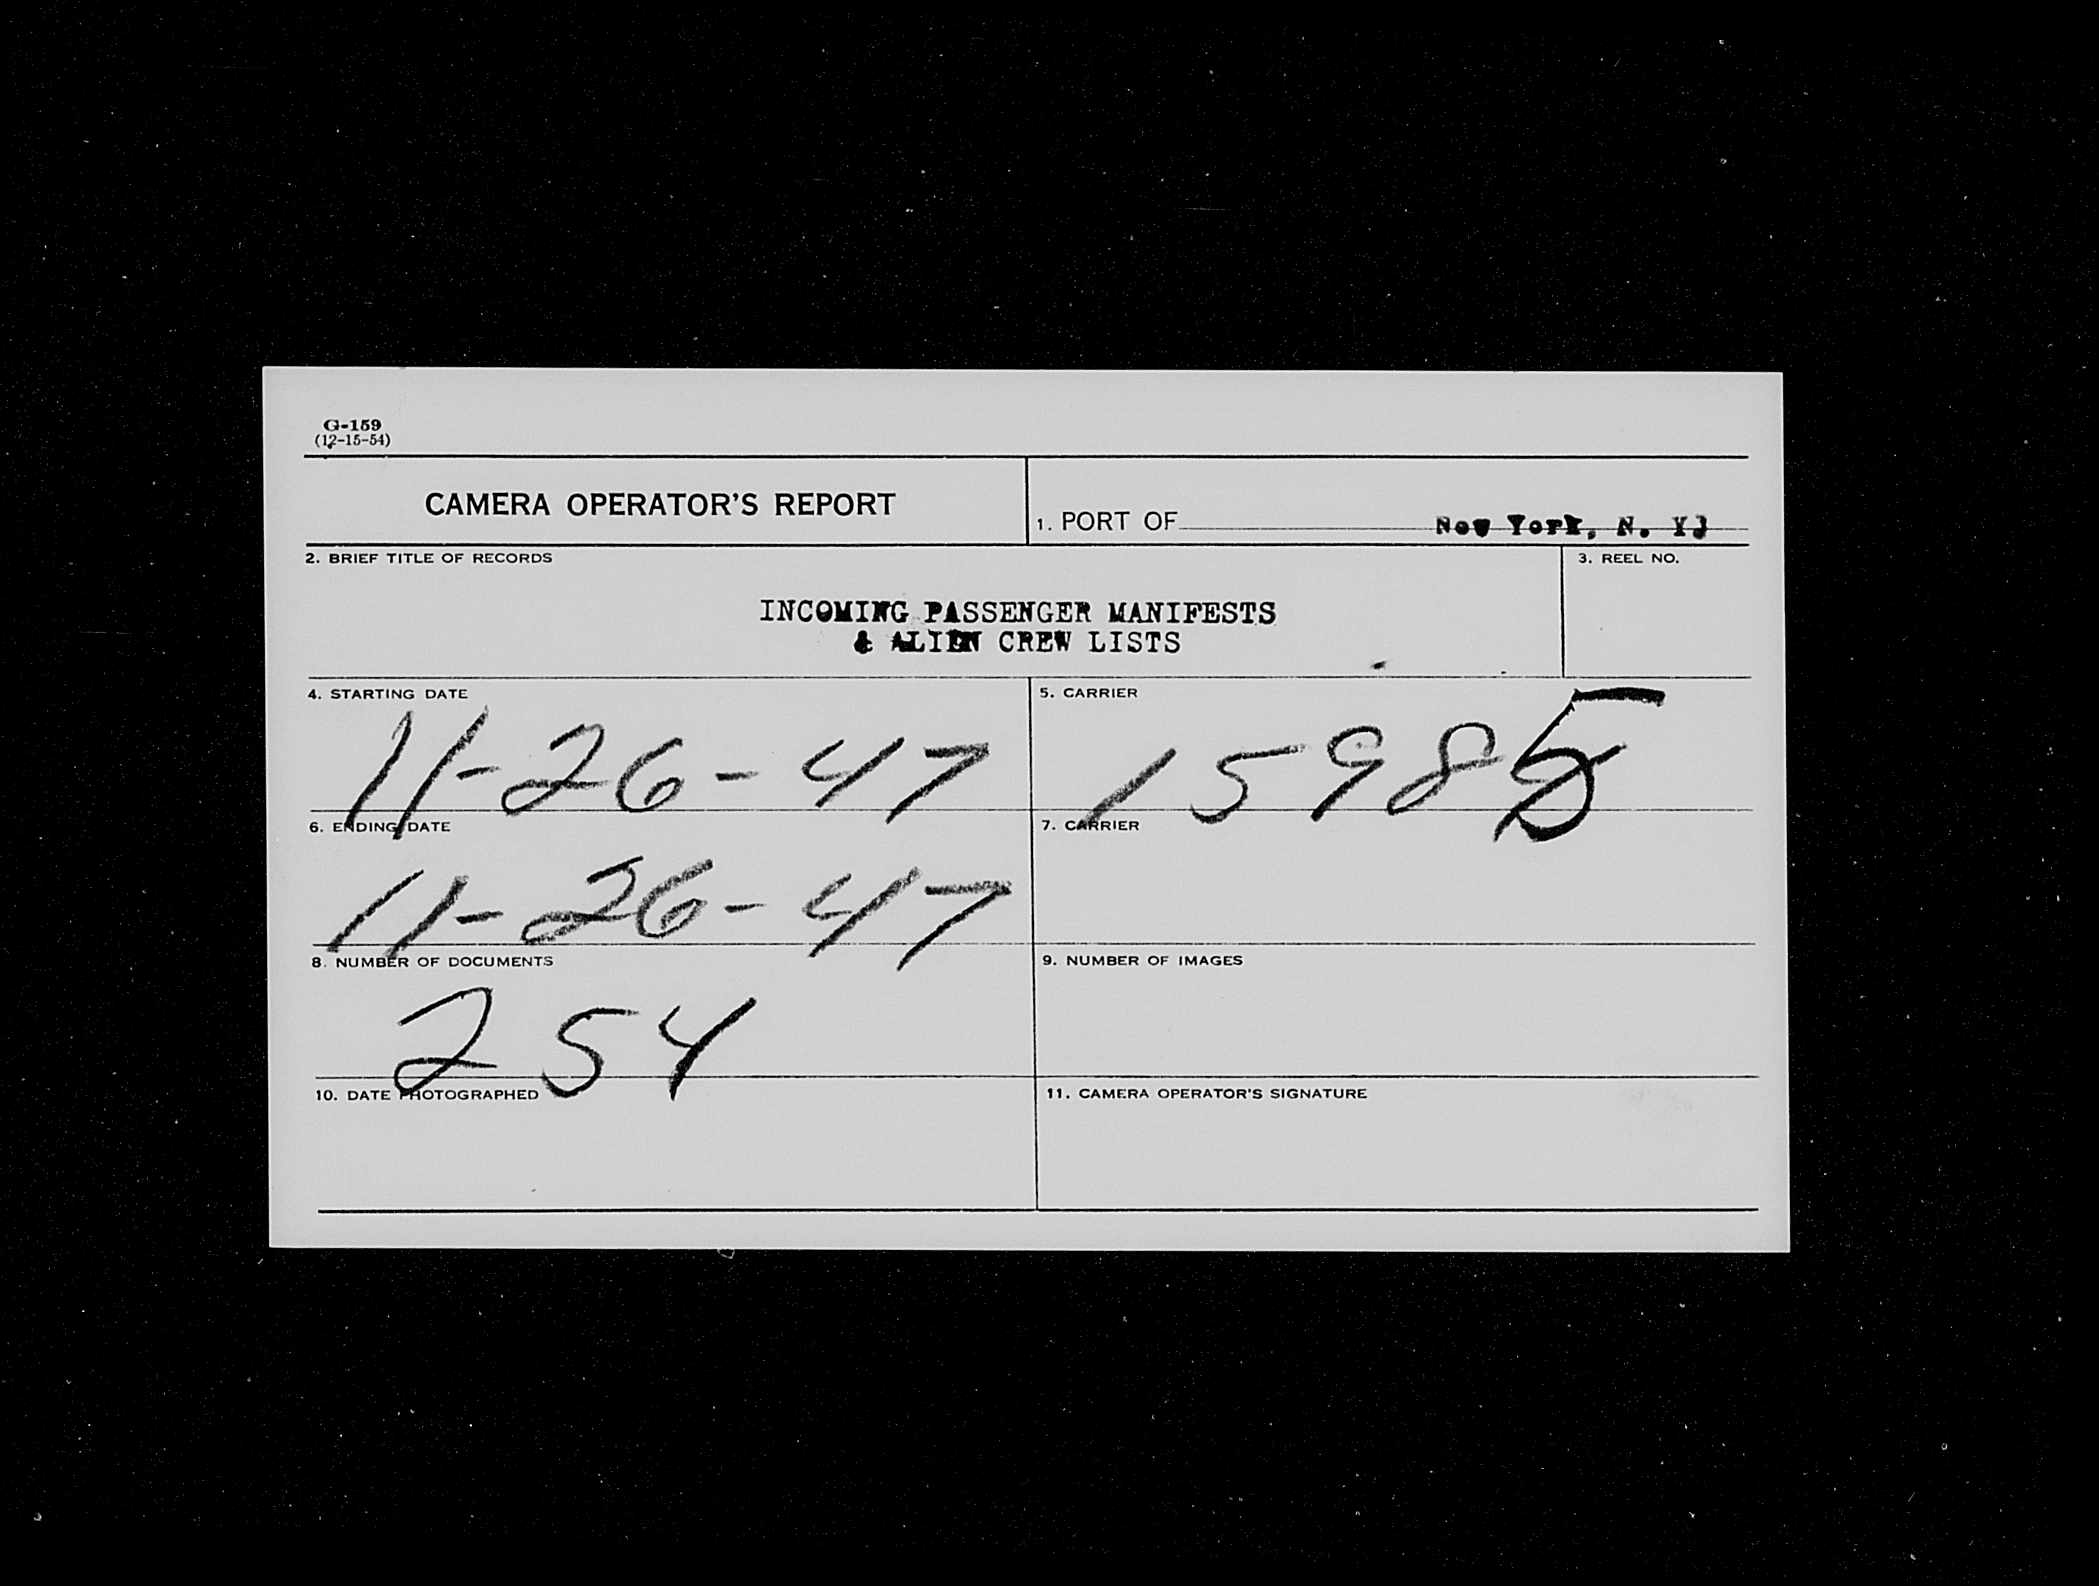 G-159
(12-15-54)
CAMERA OPERATOR'S REPORT
1. PORT OF New York, N. Y.
2. BRIEF TITLE OF RECORDS
3. REEL NO.
INCOMING PASSENGER MANIFESTS
& ALIEN CREW LISTS
4. STARTING DATE
5. CARRIER
11-26-47
15985
6. ENDING DATE
7. CARRIER
11-26-47
8. NUMBER OF DOCUMENTS
9. NUMBER OF IMAGES
254
10. DATE PHOTOGRAPHED
11. CAMERA OPERATOR'S SIGNATURE